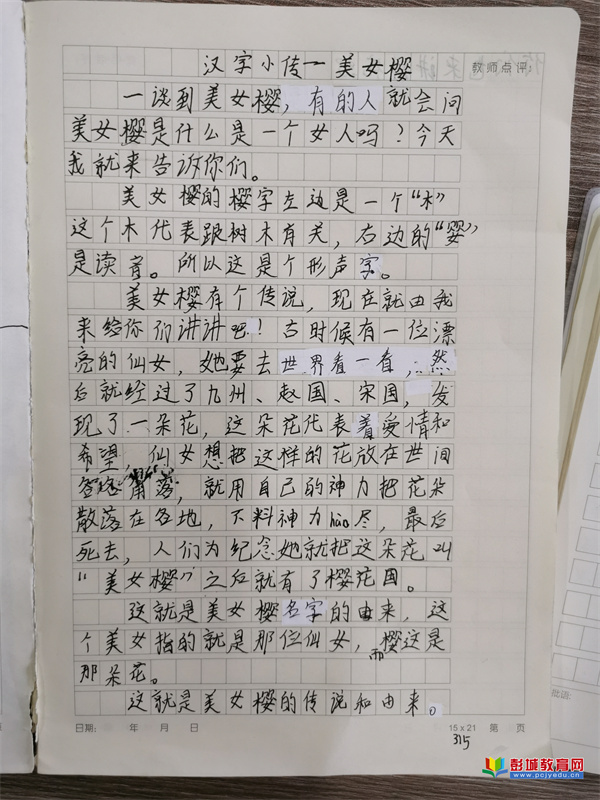 汉字小传一美女樱
教师点评:
一谈到美女樱，有的人就会问
美女樱是什么是一个女人吗？今天
我就来告诉你们。
美女樱的樱字左边是一个“木”
这个木代表跟树木有关，右边的“婴”
是读音。所以这是个形声字。
美女樱有个传说，现在就由我
来给你们讲讲吧！古时候有一位漂
亮的仙女，她要去世界看一看，然
后就经过了九州、赵国、宋国，发
现了一朵花，这朵花代表着爱情和
希望 仙女想把这样的花放在世间
角落，就用自己的神力把花朵
散落在各地，不料神力hào尽，最后
死去，人们为纪念她就把这朵花叫
“美女樱”之后就有了樱花国。
这就是美女樱名字的由来，这
个美女指的就是那位仙女，而樱这是
那朵花。
这就是美女樱的传说和由来。
日期: 年 月 日
15 x 21 第 页
315
批语:
彭城教育网
www.pcjyedu.cn